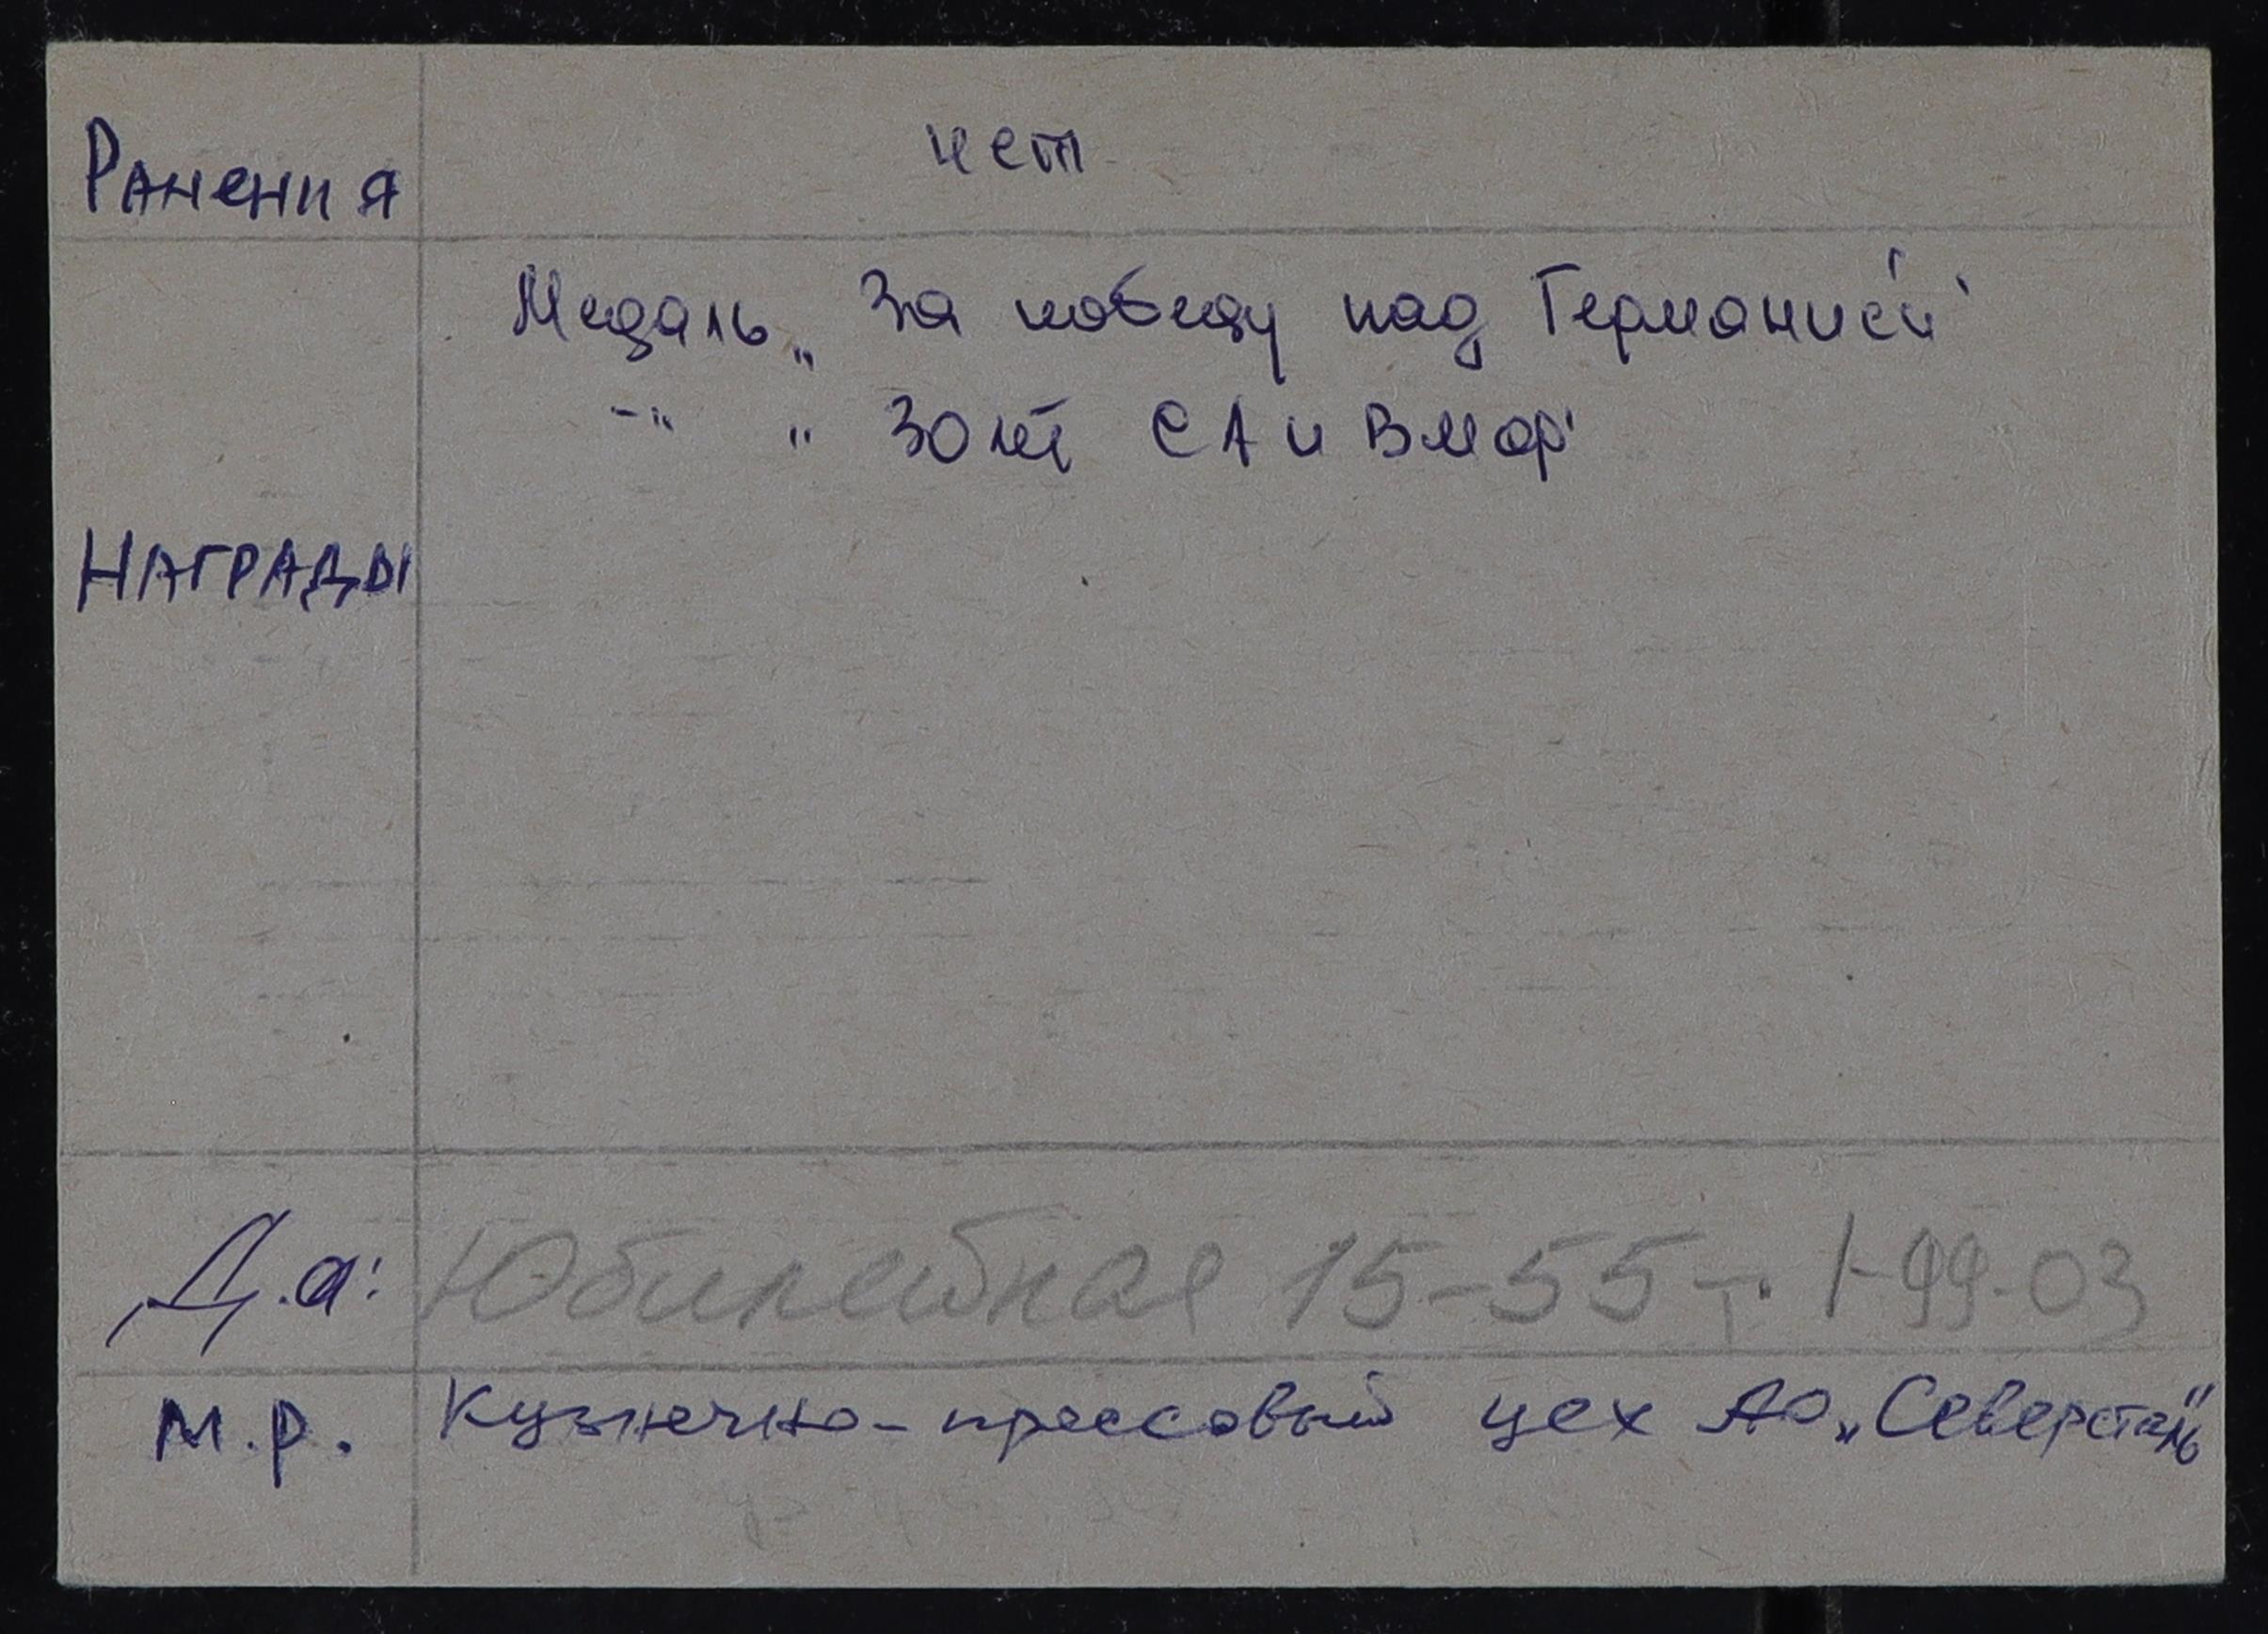 Ранения нет
Медаль „За победу над Германией"
-"- „30 лет СА и ВМФ"
Награды
Д.а: Юбилейная 15-55 т. 1-99-03
М.р. Кузнечно-прессовый цех АО „Северсталь"